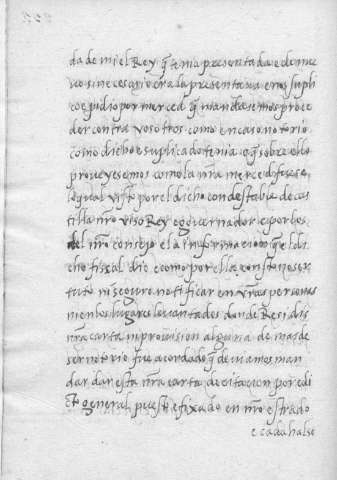 da de mi el Rey q̃ tenia presentada e de nue
vo si necesario era la presentava e nos supli
co e pidio por merced q̃ mandasemos proce
der contra vosotros como en caso notorio
como dicho e suplicado tenia e q̃ sobre ello
proveyesemos como la nra merced fuese
lo qual visto por el dicho condestable de cas
tilla nro viso Rey e governador e por los
del nro consejo e la informacion q̃ el di
cho fiscal dio e como por ella consto no ser
tuto ni seguro notificar en vras personas
ni en los lugares levantados donde Residis
nra carta ni provision alguna de mas de
ser notorio fue acordado q̃ deviamos man
dar dar esta nra carta de citacion por edi
cto general puesto e fixado en nro estrado
e cadahalso